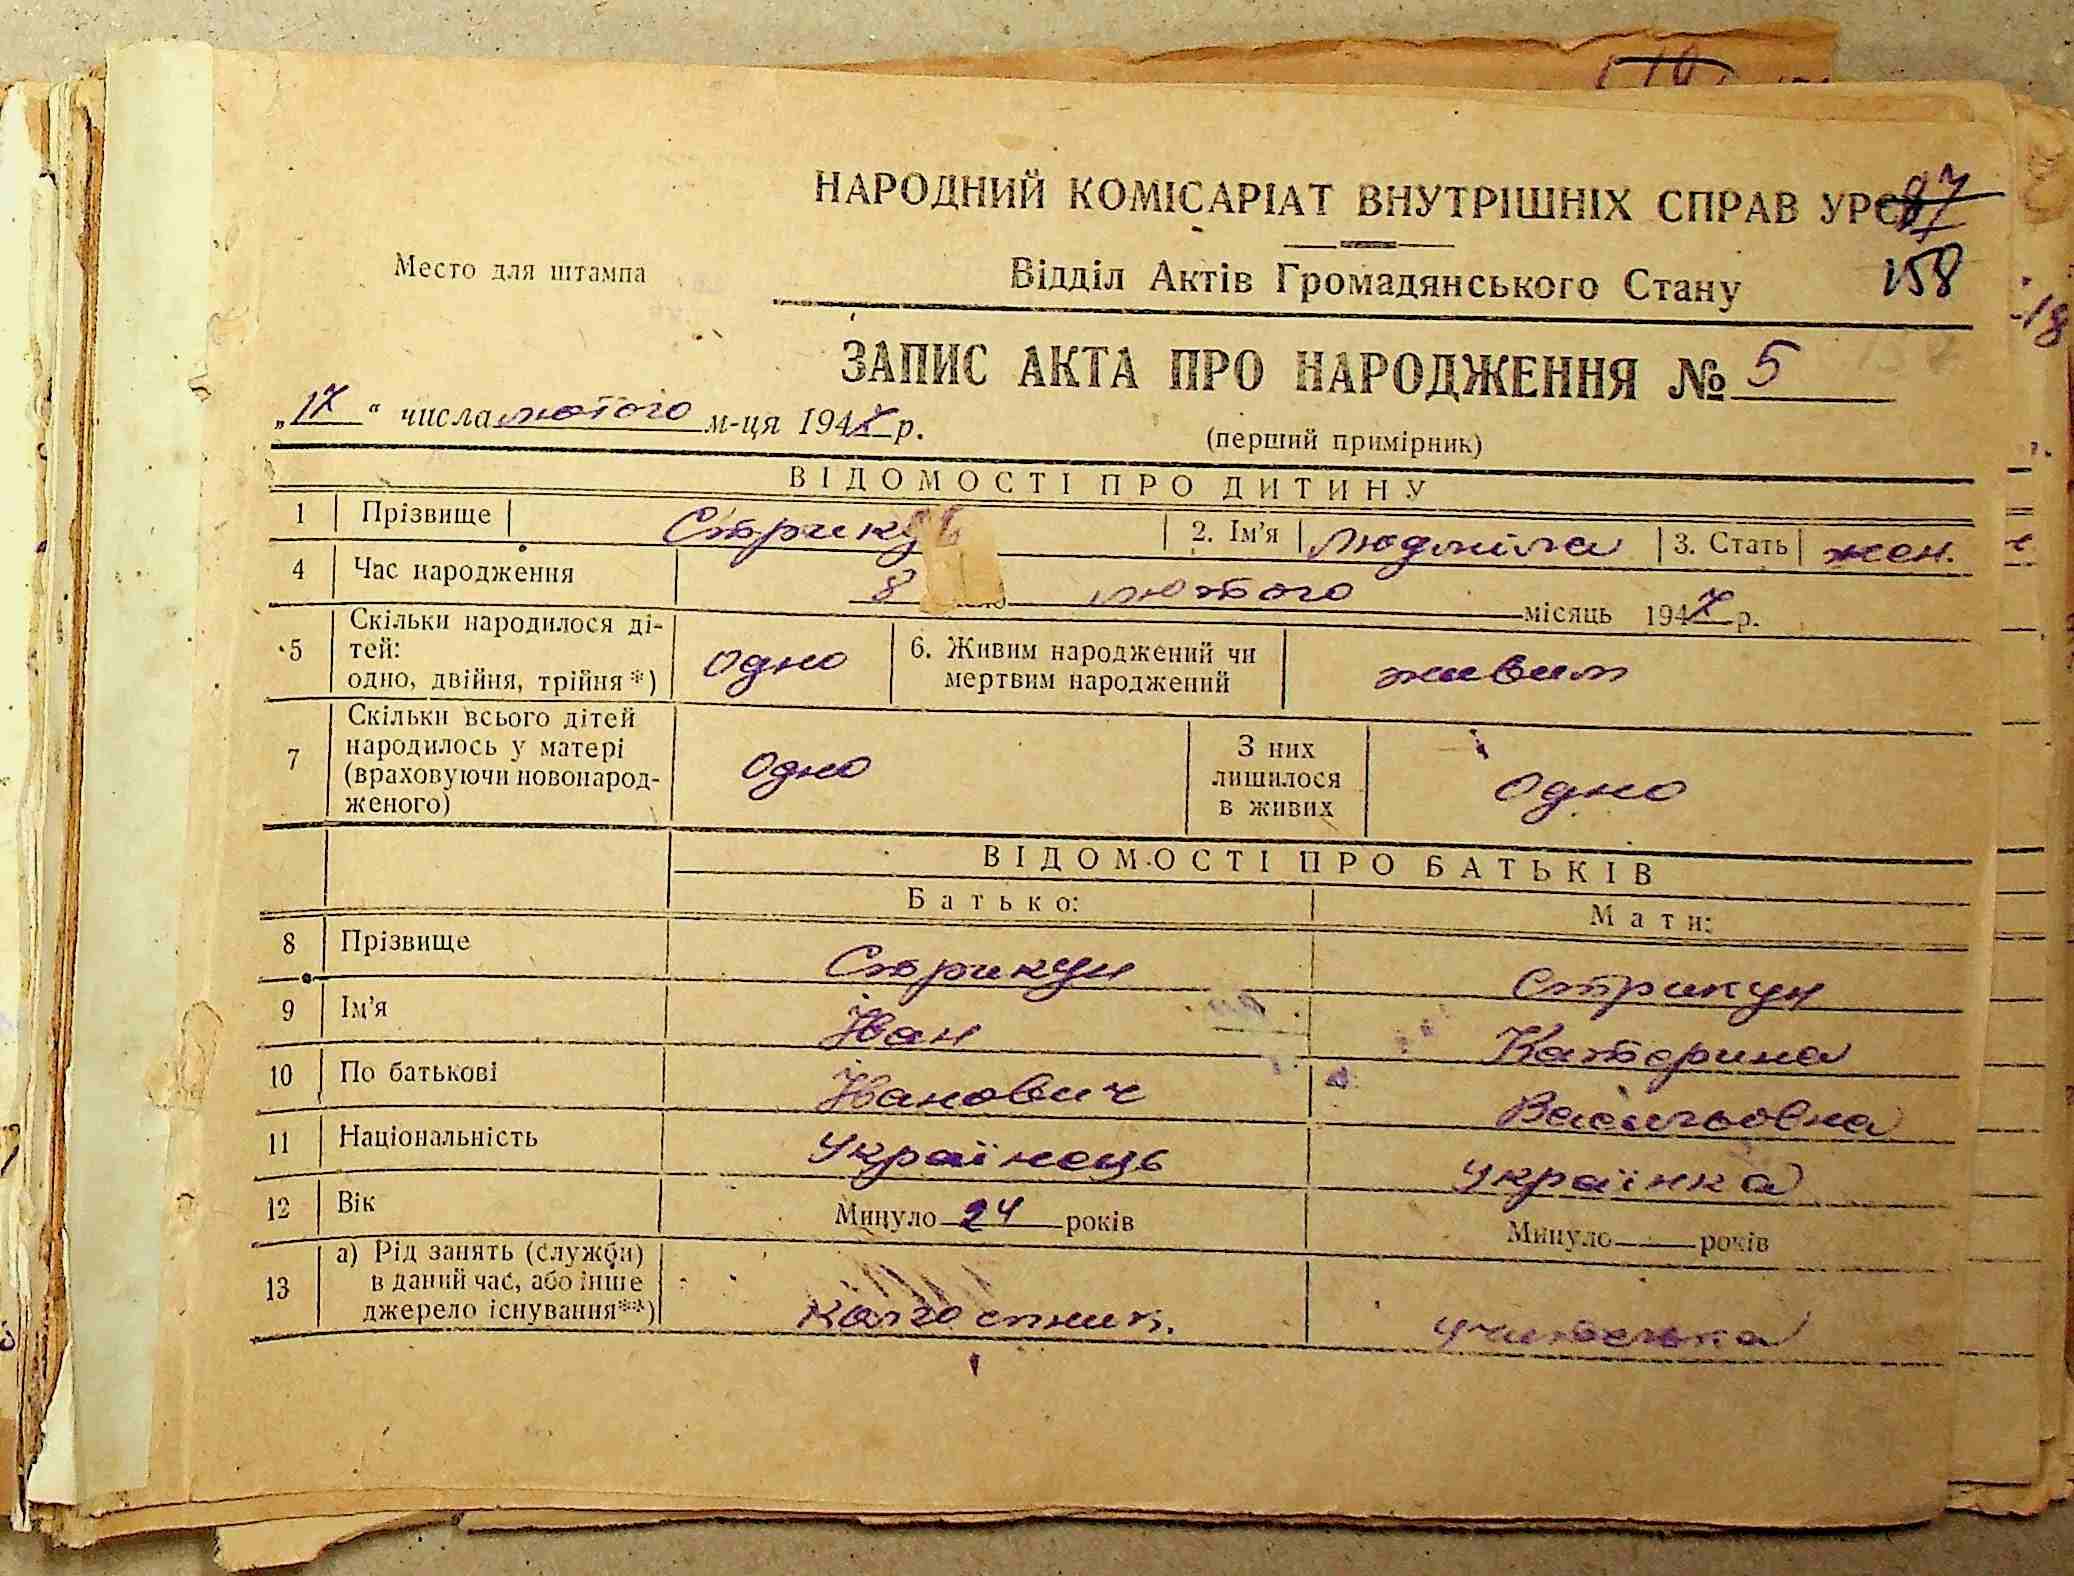 НАРОДНИЙ КОМІСАРІАТ ВНУТРІШНІХ СПРАВ УРСР
87
Место для штампа
Відділ Актів Громадянського Стану
158
ЗАПИС АКТА ПРО НАРОДЖЕННЯ № 5
„17“ числа лютого м-ця 1947 р.
(перший примірник)
ВІДОМОСТІ ПРО ДИТИНУ
1 Прізвище Стрикун 2. Ім'я Людміла 3. Стать жен.
4 Час народження 8 лютого місяць 1947 р.
5 Скільки народилося ді-
тей:
одно, двійня, трійня*) одно 6. Живим народжений чи
мертвим народжений живим
7 Скільки всього дітей
народилось у матері
(враховуючи новонарод-
женого) одно З них
лишилося
в живих одно
ВІДОМОСТІ ПРО БАТЬКІВ
Батько: Мати:
8 Прізвище Стрикун Стрикун
9 Ім'я Іван Катерина
10 По батькові Іванович Васильовна
11 Національність Українець українка
12 Вік Минуло 24 років Минуло років
13 а) Рід занять (служби)
в даний час, або інше
джерело існування**) колгоспник. учителька